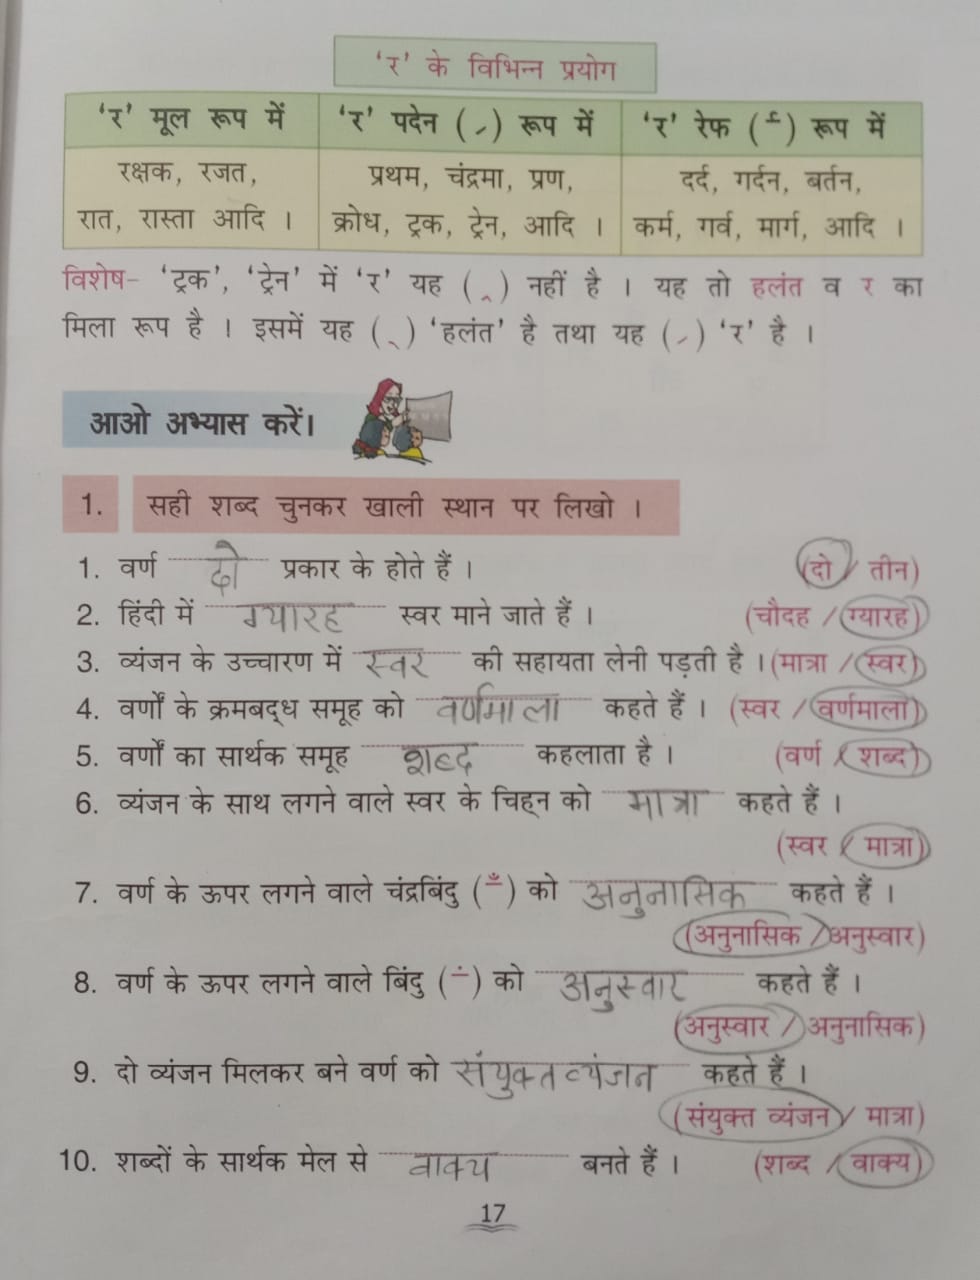 ‘र’ के विभिन्न प्रयोग
‘र’ मूल रूप में ‘र’ पदेन (್र) रूप में ‘र’ रेफ (र्) रूप में
रक्षक, रजत, प्रथम, चंद्रमा, प्रण, दर्द, गर्दन, बर्तन,
रात, रास्ता आदि । क्रोध, ट्रक, ट्रेन, आदि । कर्म, गर्व, मार्ग, आदि ।
विशेष– ‘ट्रक’, ‘ट्रेन’ में ‘र’ यह (‸) नहीं है । यह तो हलंत व र का
मिला रूप है । इसमें यह (्) ‘हलंत’ है तथा यह (⸝) ‘र’ है ।
आओ अभ्यास करें।
1. सही शब्द चुनकर खाली स्थान पर लिखो ।
1. वर्ण दो प्रकार के होते हैं । (दो / तीन)
2. हिंदी में ग्यारह स्वर माने जाते हैं । (चौदह / ग्यारह)
3. व्यंजन के उच्चारण में स्वर की सहायता लेनी पड़ती है । (मात्रा / स्वर)
4. वर्णों के क्रमबद्ध समूह को वर्णमाला कहते हैं । (स्वर / वर्णमाला)
5. वर्णों का सार्थक समूह शब्द कहलाता है । (वर्ण / शब्द)
6. व्यंजन के साथ लगने वाले स्वर के चिह्न को मात्रा कहते हैं ।
(स्वर / मात्रा)
7. वर्ण के ऊपर लगने वाले चंद्रबिंदु (ँ) को अनुनासिक कहते हैं ।
(अनुनासिक / अनुस्वार)
8. वर्ण के ऊपर लगने वाले बिंदु (ं) को अनुस्वार कहते हैं ।
(अनुस्वार / अनुनासिक)
9. दो व्यंजन मिलकर बने वर्ण को संयुक्त व्यंजन कहते हैं ।
(संयुक्त व्यंजन / मात्रा)
10. शब्दों के सार्थक मेल से वाक्य बनते हैं । (शब्द / वाक्य)
17